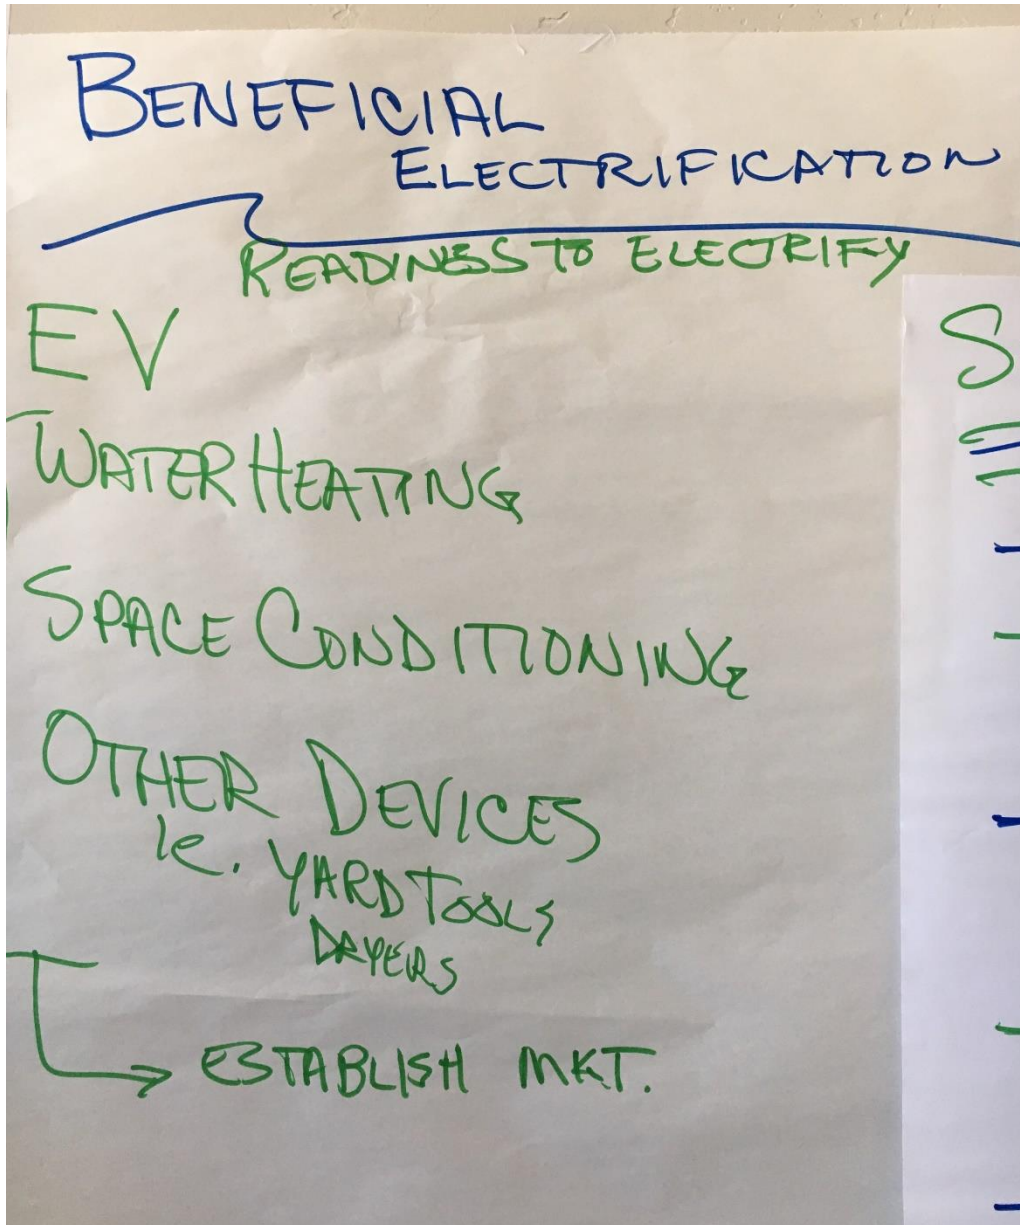 BENEFICIAL
ELECTRIFICATION
READINESS TO ELECTRIFY
EV
WATER HEATING
SPACE CONDITIONING
OTHER DEVICES
ie. YARD TOOLS
DRYERS
→ ESTABLISH MKT.
S